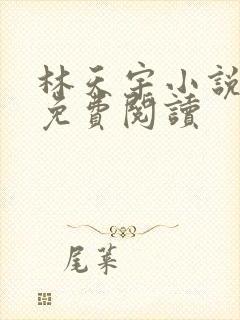 林天宇小說
免費閱讀
尾葉